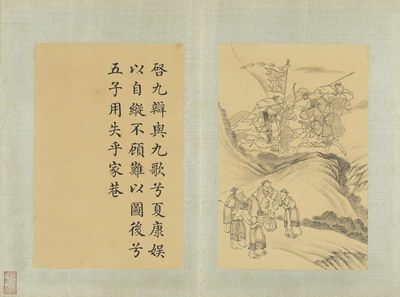 啓九辯與九歌兮夏康娛
以自縱不顧難以圖後兮
五子用失乎家巷